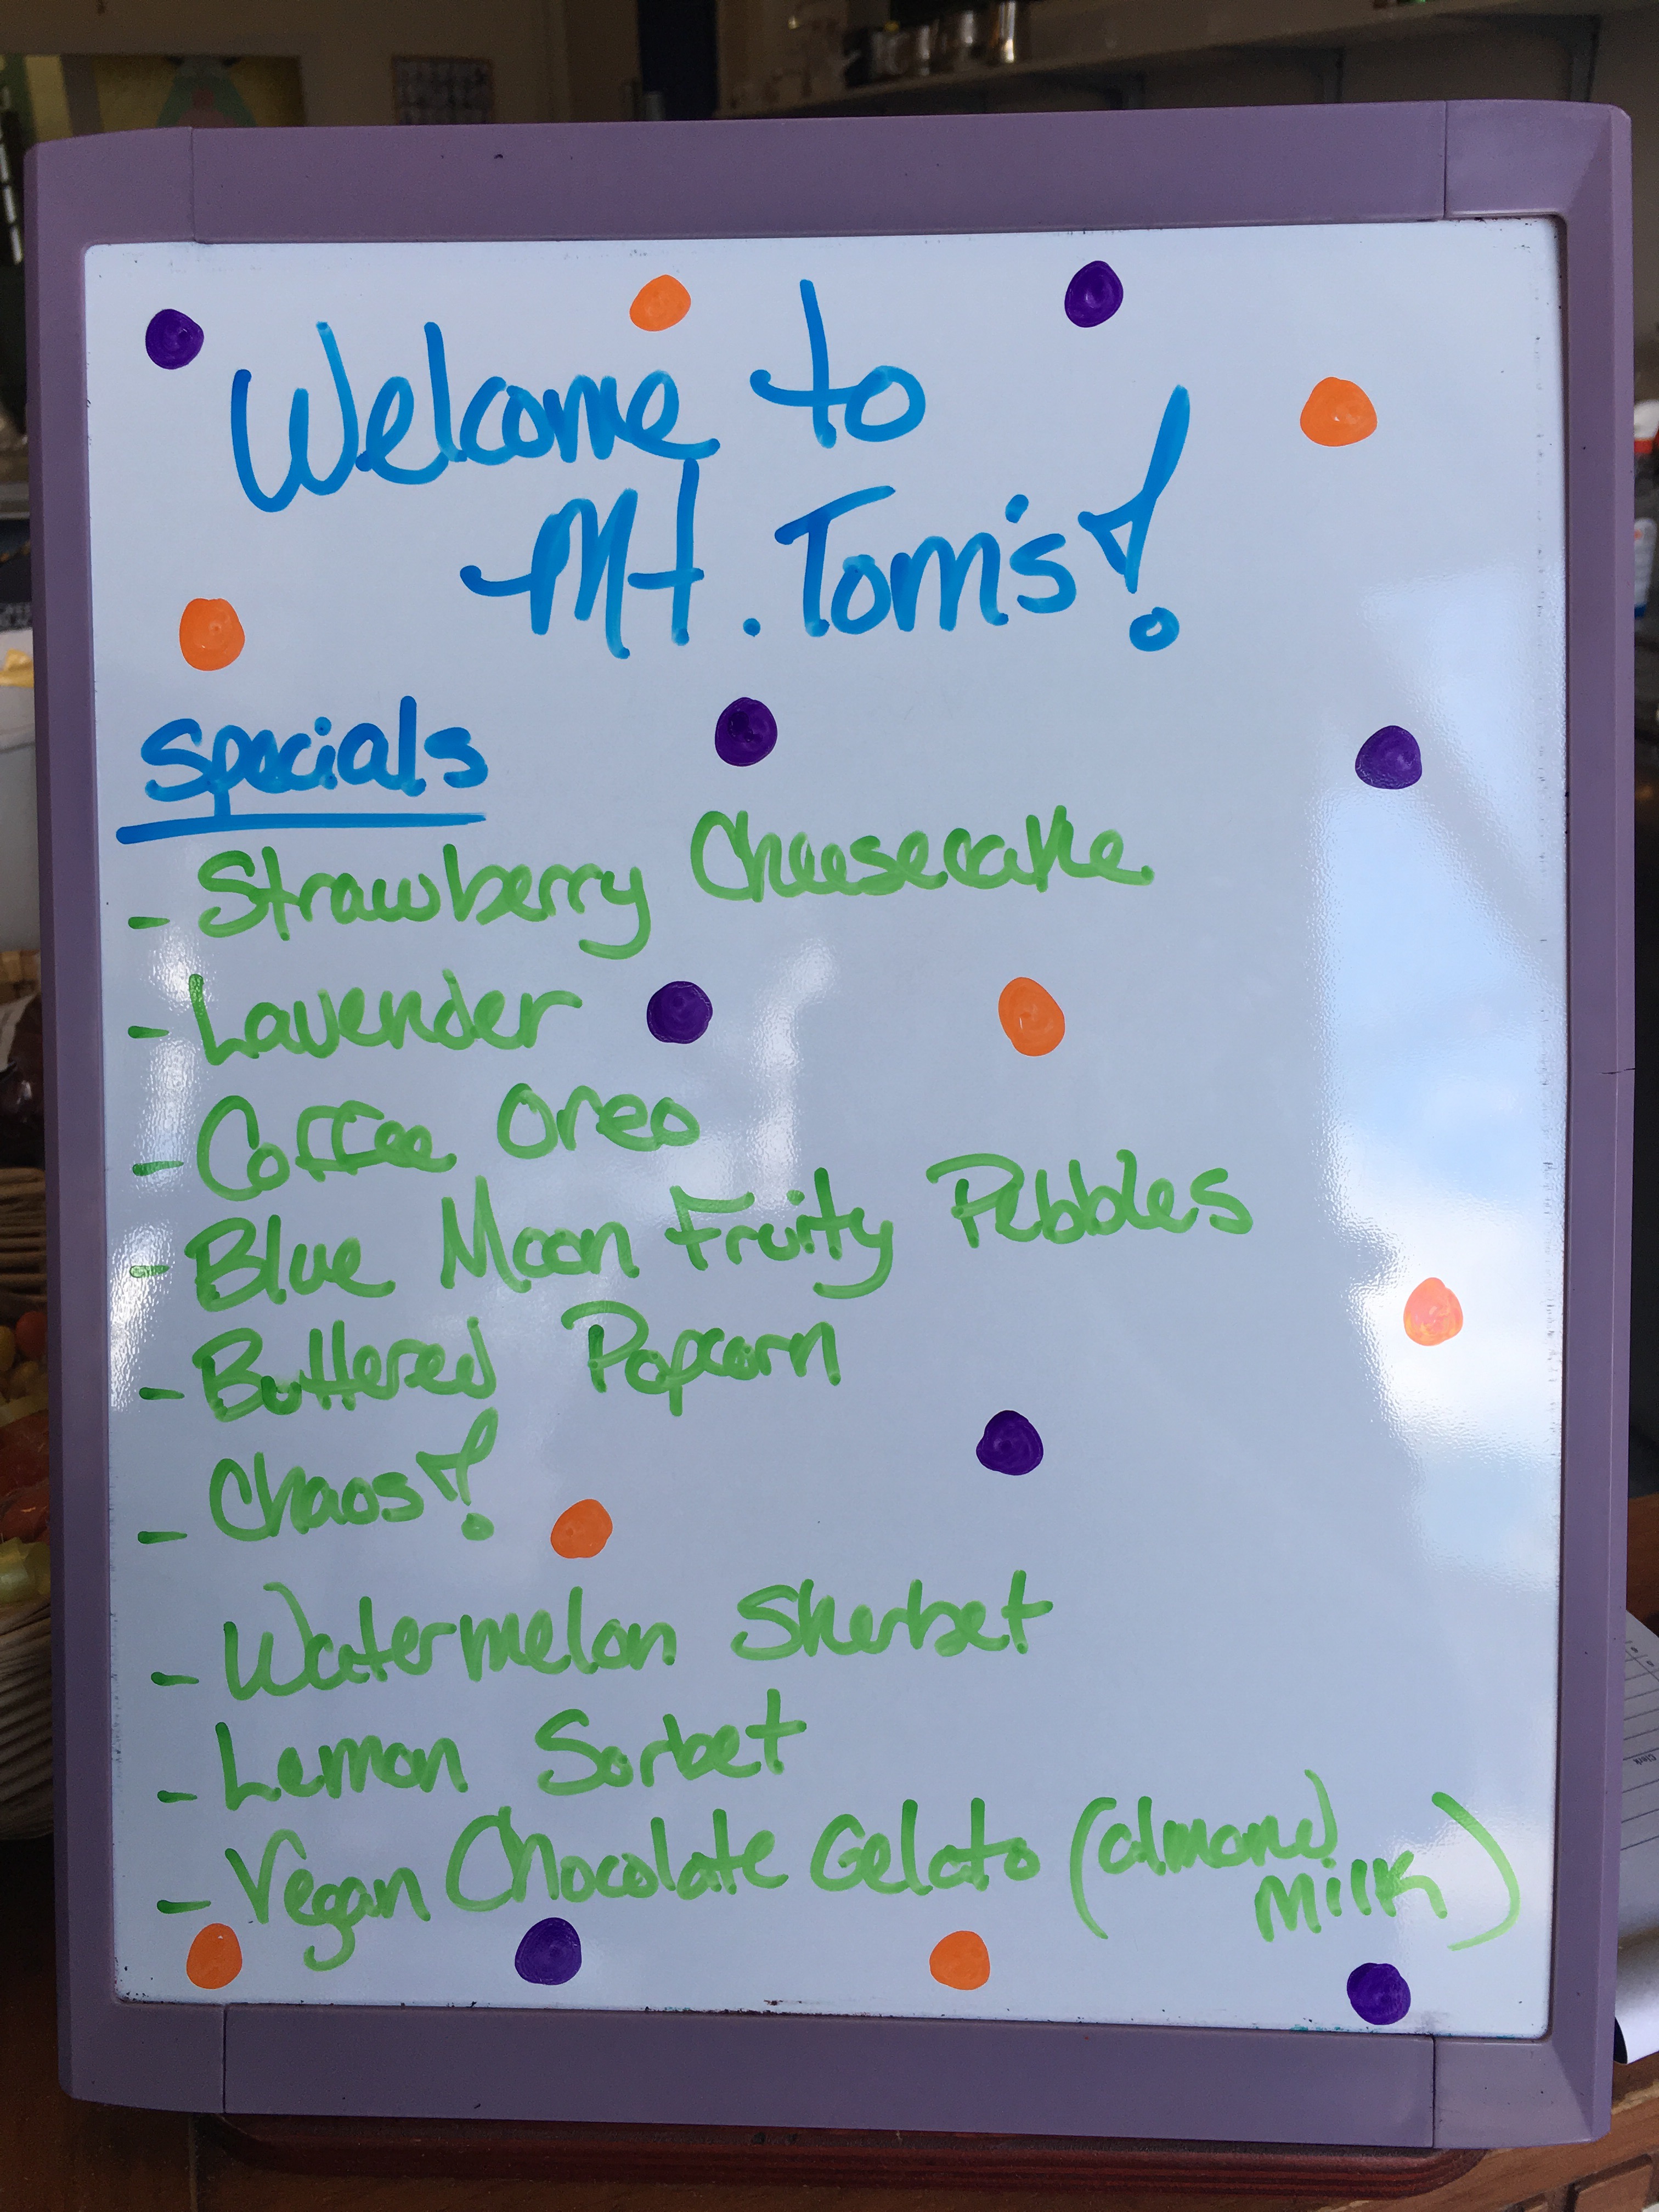 Welcome to
Mt. Tom's!
Specials
- Strawberry Cheesecake
- Lavender
- Coffee Oreo
- Blue Moon Fruity Pebbles
- Buttered Popcorn
- Chaos!
- Watermelon Sherbet
- Lemon Sorbet
- Vegan Chocolate Gelato (almond
milk)